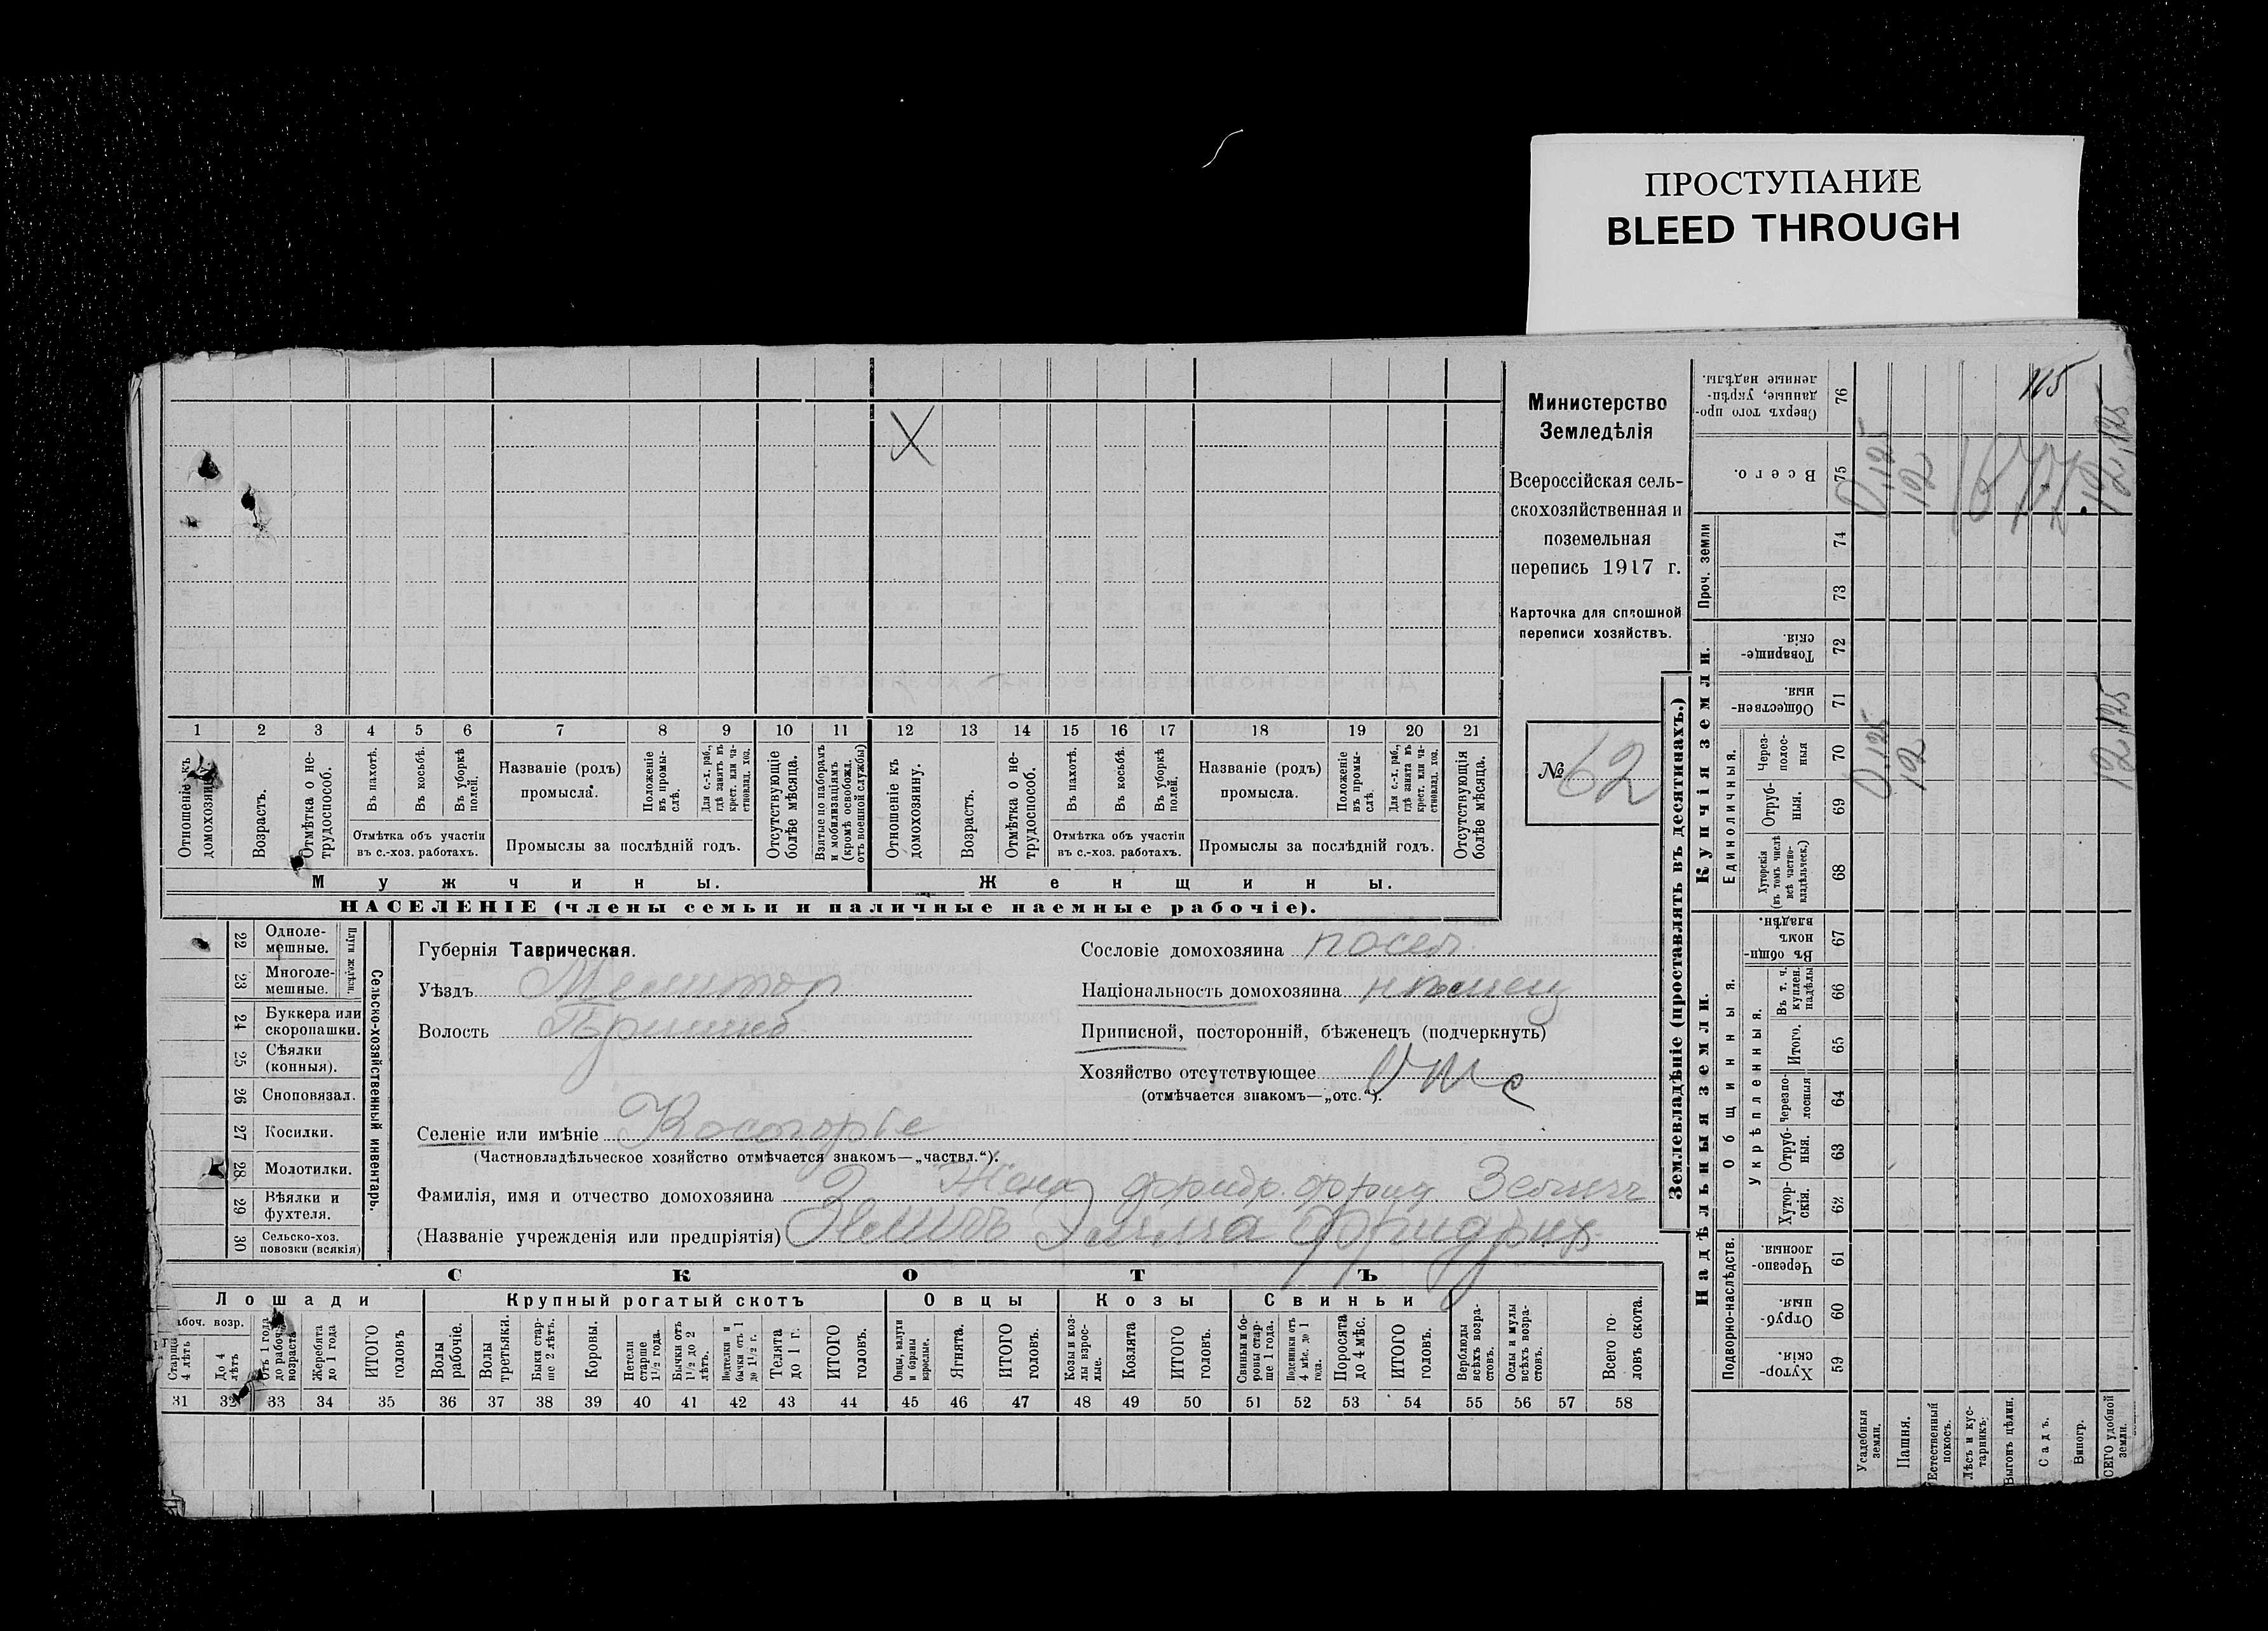 ПРОСТУПАНИЕ
BLEED THROUGH
115
Министерство
Земледѣлія
Всероссійская сель-
скохозяйственная и
поземельная
перепись 1917 г.
Карточка для сплошной
переписи хозяйствъ.
№ 62
X
1 2 3 4 5 6 7 8 9 10 11 12 13 14 15 16 17 18 19 20 21
Отношеніе къ домохозяину.
Возрастъ.
Отмѣтка о не-
трудоспособ.
Въ пахотѣ.
Въ косьбѣ.
Въ уборкѣ
полей.
Отмѣтка объ участіи
въ с.-хоз. работахъ.
Названіе (родъ)
промысла.
Положеніе
въ промы-
слѣ.
Для с.-х. раб.,
гдѣ занятъ въ
крест. или ча-
стновлад. хоз.
Промыслы за послѣдній годъ.
Отсутствующіе
болѣе мѣсяца.
Взятые по наборамъ
и мобилизаціямъ
(кромѣ освобожд.
отъ военной службы)
Отношеніе къ
домохозяину.
Возрастъ.
Отмѣтка о не-
трудоспособ.
Въ пахотѣ.
Въ косьбѣ.
Въ уборкѣ
полей.
Отмѣтка объ участіи
въ с.-хоз. работахъ.
Названіе (родъ)
промысла.
Положеніе
въ промы-
слѣ.
Для с.-х. раб.,
гдѣ занята въ
крест. или ча-
стновлад. хоз.
Промыслы за послѣдній годъ.
Отсутствующія
болѣе мѣсяца.
Мужчины.
Женщины.
НАСЕЛЕНІЕ (члены семьи и наличные наемные рабочіе).
22 Одноле-
мешные.
23 Многоле-
мешные.
Плуги желѣзн.
24 Буккера или
скоропашки.
25 Сѣялки
(конныя).
26 Сноповязал.
27 Косилки.
28 Молотилки.
29 Вѣялки и
фухтеля.
30 Сельско-хоз.
повозки (всякія)
Сельско-хозяйственный инвентарь.
Губернія Таврическая.
Уѣздъ Мелитоп
Волость Пришиб
Селеніе или имѣніе Косогорье
(Частновладѣльческое хозяйство отмѣчается знакомъ—„частвл.“).
Сословіе домохозяина посел.
Національность домохозяина нѣмец
Приписной, посторонній, бѣженецъ (подчеркнуть)
Хозяйство отсутствующее отс
(отмѣчается знакомъ—„отс.“).
Жена Фридр. Фрид
Фамилія, имя и отчество домохозяина
(Названіе учрежденія или предпріятія) Фридрих
СКОТЪ
Лошади
Крупный рогатый скотъ
Овцы
Козы
Свиньи
абоч. возр.
Старше
4 лѣтъ
До 4
лѣтъ
Отъ 1 года
до рабоч.
возраста
Жеребята
до 1 года
ИТОГО
головъ
Волы
рабочіе.
Волы
третьяки.
Быки стар-
ше 2 лѣтъ.
Коровы.
Нетели
старше
1½ года.
Бычки отъ
1½ до 2
лѣтъ.
Нетелки и
бычки отъ 1
до 1½ г.
Телята
до 1 г.
ИТОГО
головъ.
Овцы, валухи
и бараны
взрослые.
Ягнята.
ИТОГО
головъ.
Козы и коз-
лы взрос-
лые.
Козлята
ИТОГО
головъ.
Свиньи и бо-
ровы стар-
ше 1 года.
Подсвинки отъ
4 мѣс. до 1
года.
Поросята
до 4 мѣс.
ИТОГО
головъ.
Верблюды
всѣхъ возра-
стовъ.
Ослы и мулы
всѣхъ возра-
стовъ.
Всего го-
ловъ скота.
31 32 33 34 35 36 37 38 39 40 41 42 43 44 45 46 47 48 49 50 51 52 53 54 55 56 57 58
Землевладѣніе (проставлять въ десятинахъ.)
Купчія земли.
Надѣльныя земли.
Сверхъ того про-
данные, укрѣп-
ленные надѣлы.
76
Всего.
75
0,125
192
122,125
Проч. земли
74
73
Товарище-
скія.
72
Обществен-
ныя.
71
Единоличныя.
Через-
полос-
ныя
70
0,125
192
Отруб-
ныя.
69
Хуторскія
(въ томъ числѣ
всѣ частно-
владѣльческ.)
68
Общинныя.
Въ общин-
номъ
владѣн.
67
Укрѣпленныя.
Въ т. ч.
куплен.
надѣлы
66
Итого.
65
Черезпо-
лосныя
64
Отруб-
ныя.
63
Хутор-
скія.
62
Подворно-наслѣдств.
Черезпо-
лосныя
61
Отруб-
ныя.
60
Хутор-
скія.
59
Усадебныя
земли.
Пашня.
Естественный
покосъ.
Лѣсъ и кус-
тарникъ.
Выгонъ цѣлин.
Садъ.
Виногр.
СЕГО удобной
земли.